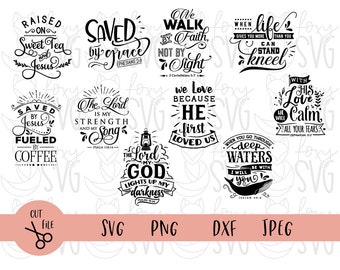 RAISED
ON
Sweet Tea
and
Jesus
SAVED
by grace
We
WALK
by Faith
NOT BY
Sight
2 Corinthians 5:7
WHEN life
GIVES YOU MORE THAN YOU
CAN
STAND
kneel
SAVED
by Jesus
FUELED
BY
COFFEE
The Lord
IS MY
STRENGTH
AND MY
Song
we Love
BECAUSE
HE
first
LOVED US
The Lord
MY
GOD
LIGHTS UP MY
darkness
WITH
HIS
Love
HE WILL
Calm
ALL YOUR FEARS
WHEN YOU GO THROUGH
deep
WATERS
I WILL
BE
with
you
CUT
FILE
SVG PNG DXF JPEG